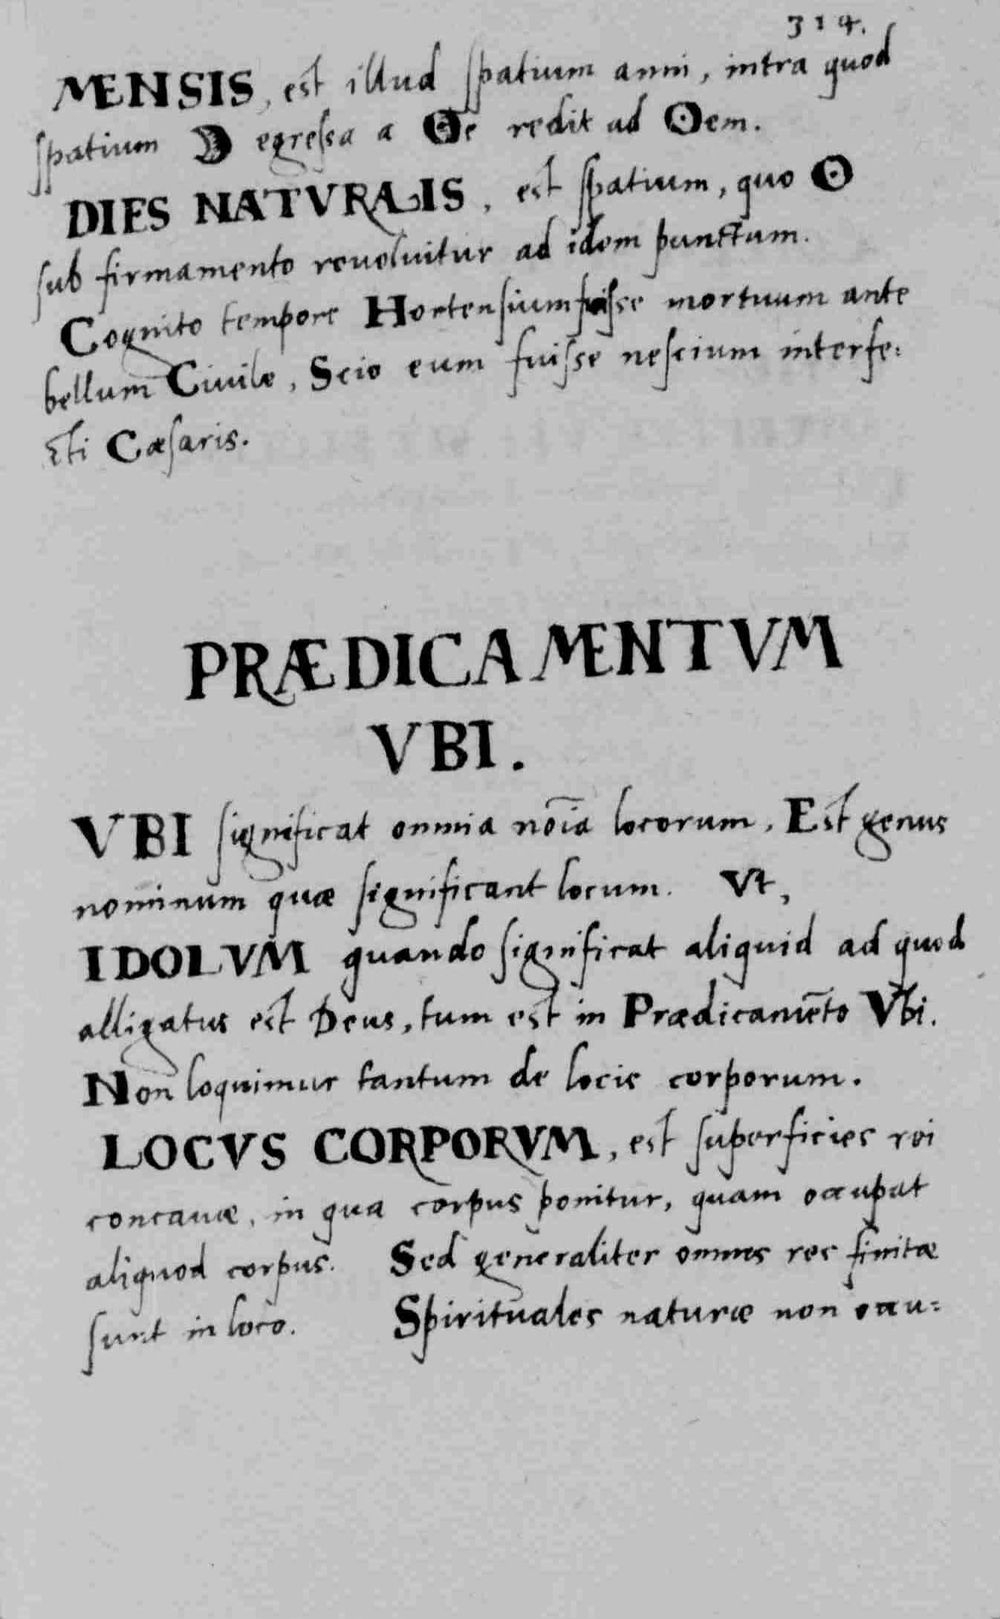 314.
MENSIS, est illud spatium anni, intra quod
spatium ☽ egressa a ☉e redit ad ☉em.
DIES NATVRALIS, est spatium, quo ☉
sub firmamento reuoluitur ad idem punctum.
Cognito tempore Hortensium fuisse mortuum ante
bellum Ciuile, Scio eum fuisse nescium interfe:
cti Cæsaris.
PRÆDICAMENTVM
VBI.
VBI significat omnia nōīa locorum. Est genus
nominum quæ significant locum. Vt,
IDOLVM quando significat aliquid ad quod
alligatus est Deus, tum est in Prædicamēto Vbi.
Non loquimur tantum de locis corporum.
LOCVS CORPORVM, est superficies rei
concauæ, in qua corpus ponitur, quam occupat
aliquod corpus. Sed generaliter omnes res finitæ
sunt in loco. Spirituales naturæ non occu: